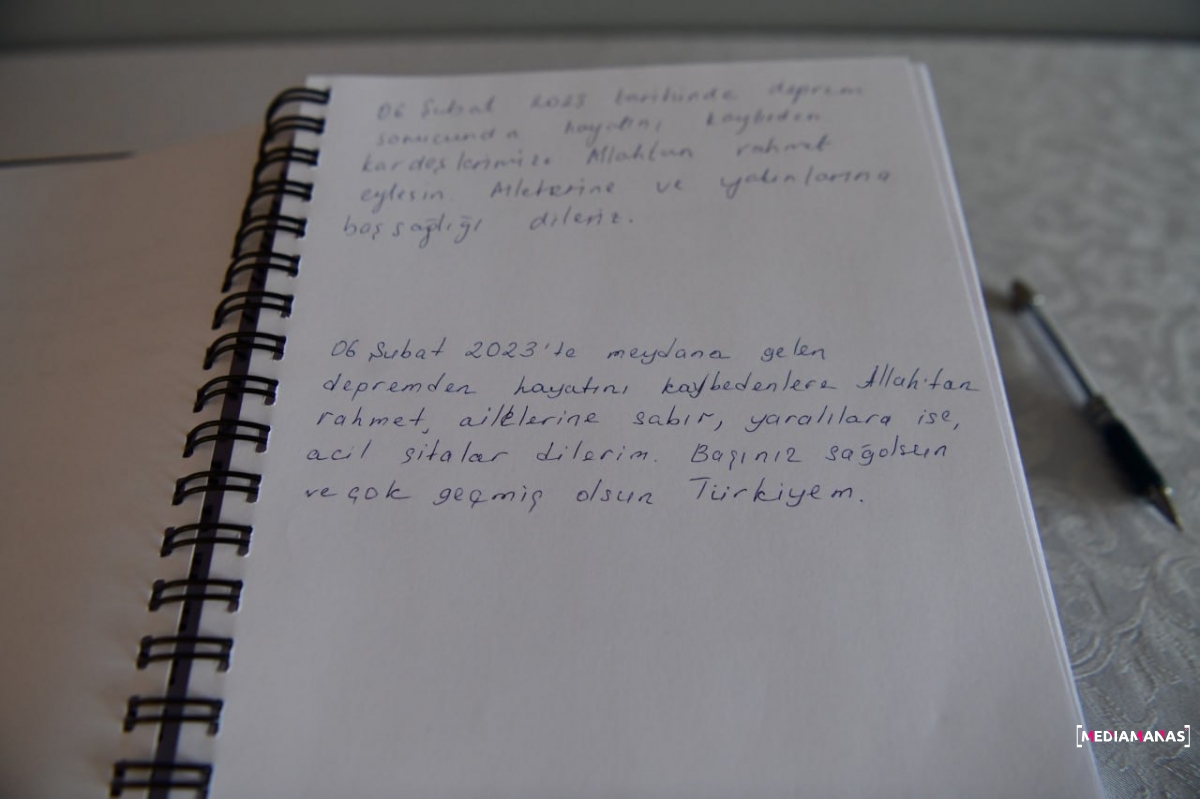 06 Şubat 2023 tarihinde deprem
sonucunda hayatını kaybeden
kardeşlerimize Allahtan rahmet
eylesin. Ailelerine ve yakınlarına
baş sağlığı dileriz.
06 Şubat 2023'te meydana gelen
depremden hayatını kaybedenlere Allah'tan
rahmet, ailelerine sabır, yaralılara ise,
acil şifalar dilerim. Başınız sağolsun
ve çok geçmiş olsun Türkiyem.
[MEDIAMANAS]